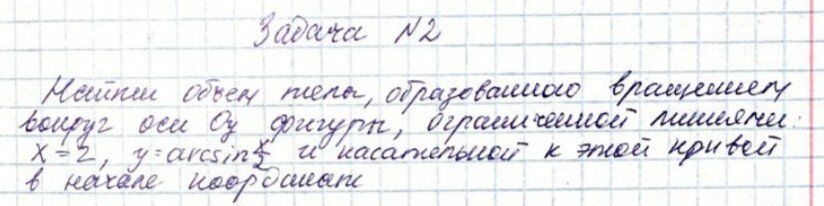 Задача №2
Найти объем тела, образованного вращением
вокруг оси Oy фигуры, ограниченной линиями:
x=2, y=arcsin x/2 и касательной к этой кривой
в начале координат